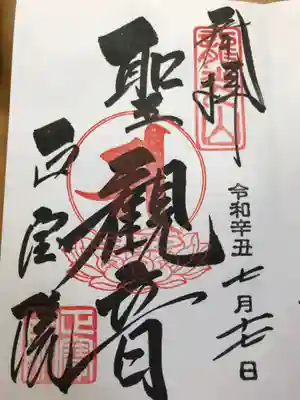 奉拝
令和辛丑 七月十七日
聖觀音
正宝院